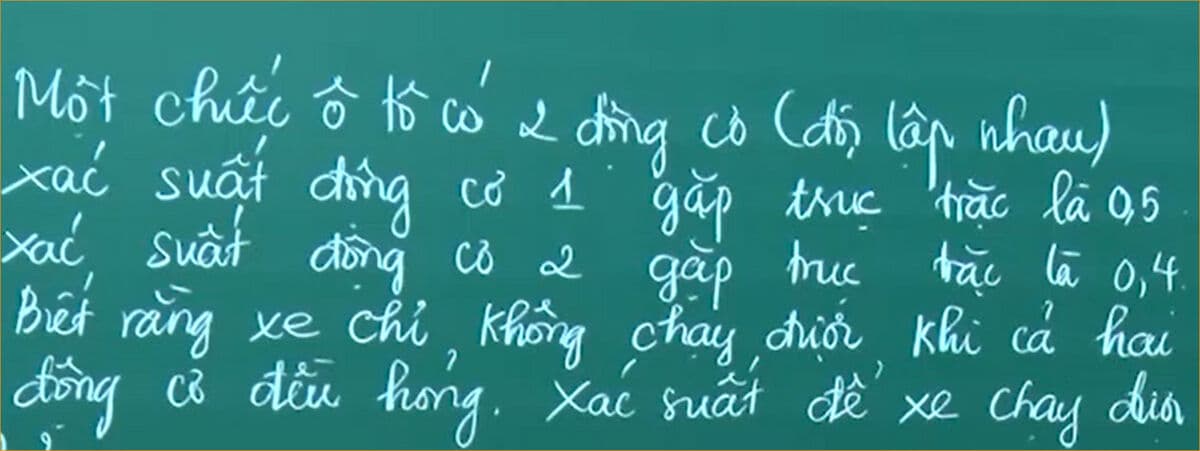 Một chiếc ô tô có 2 động cơ (độc lập nhau)
xác suất động cơ 1 gặp trục trặc là 0,5
xác suất động cơ 2 gặp trục trặc là 0,4.
Biết rằng xe chỉ không chạy được khi cả hai
động cơ đều hỏng. Xác suất để xe chạy được